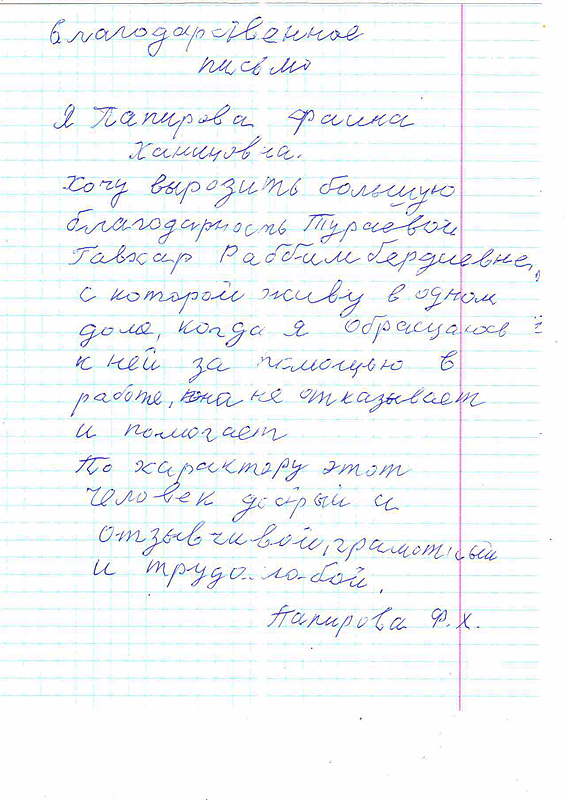 Благодарственное
письмо
Я Папирова Фаина
Ханиновна.
Хочу вырозить большую
благодарность Тураевой
Гавхар Раббимбердиевне,
с которой живу в одном
доме, когда я обращаюсь
к ней за помощью в
работе, она не отказывает
и помогает
По характору этот
человек добрый и
отзывчивой, грамотный
и трудолюбой.
Папирова Ф.Х.